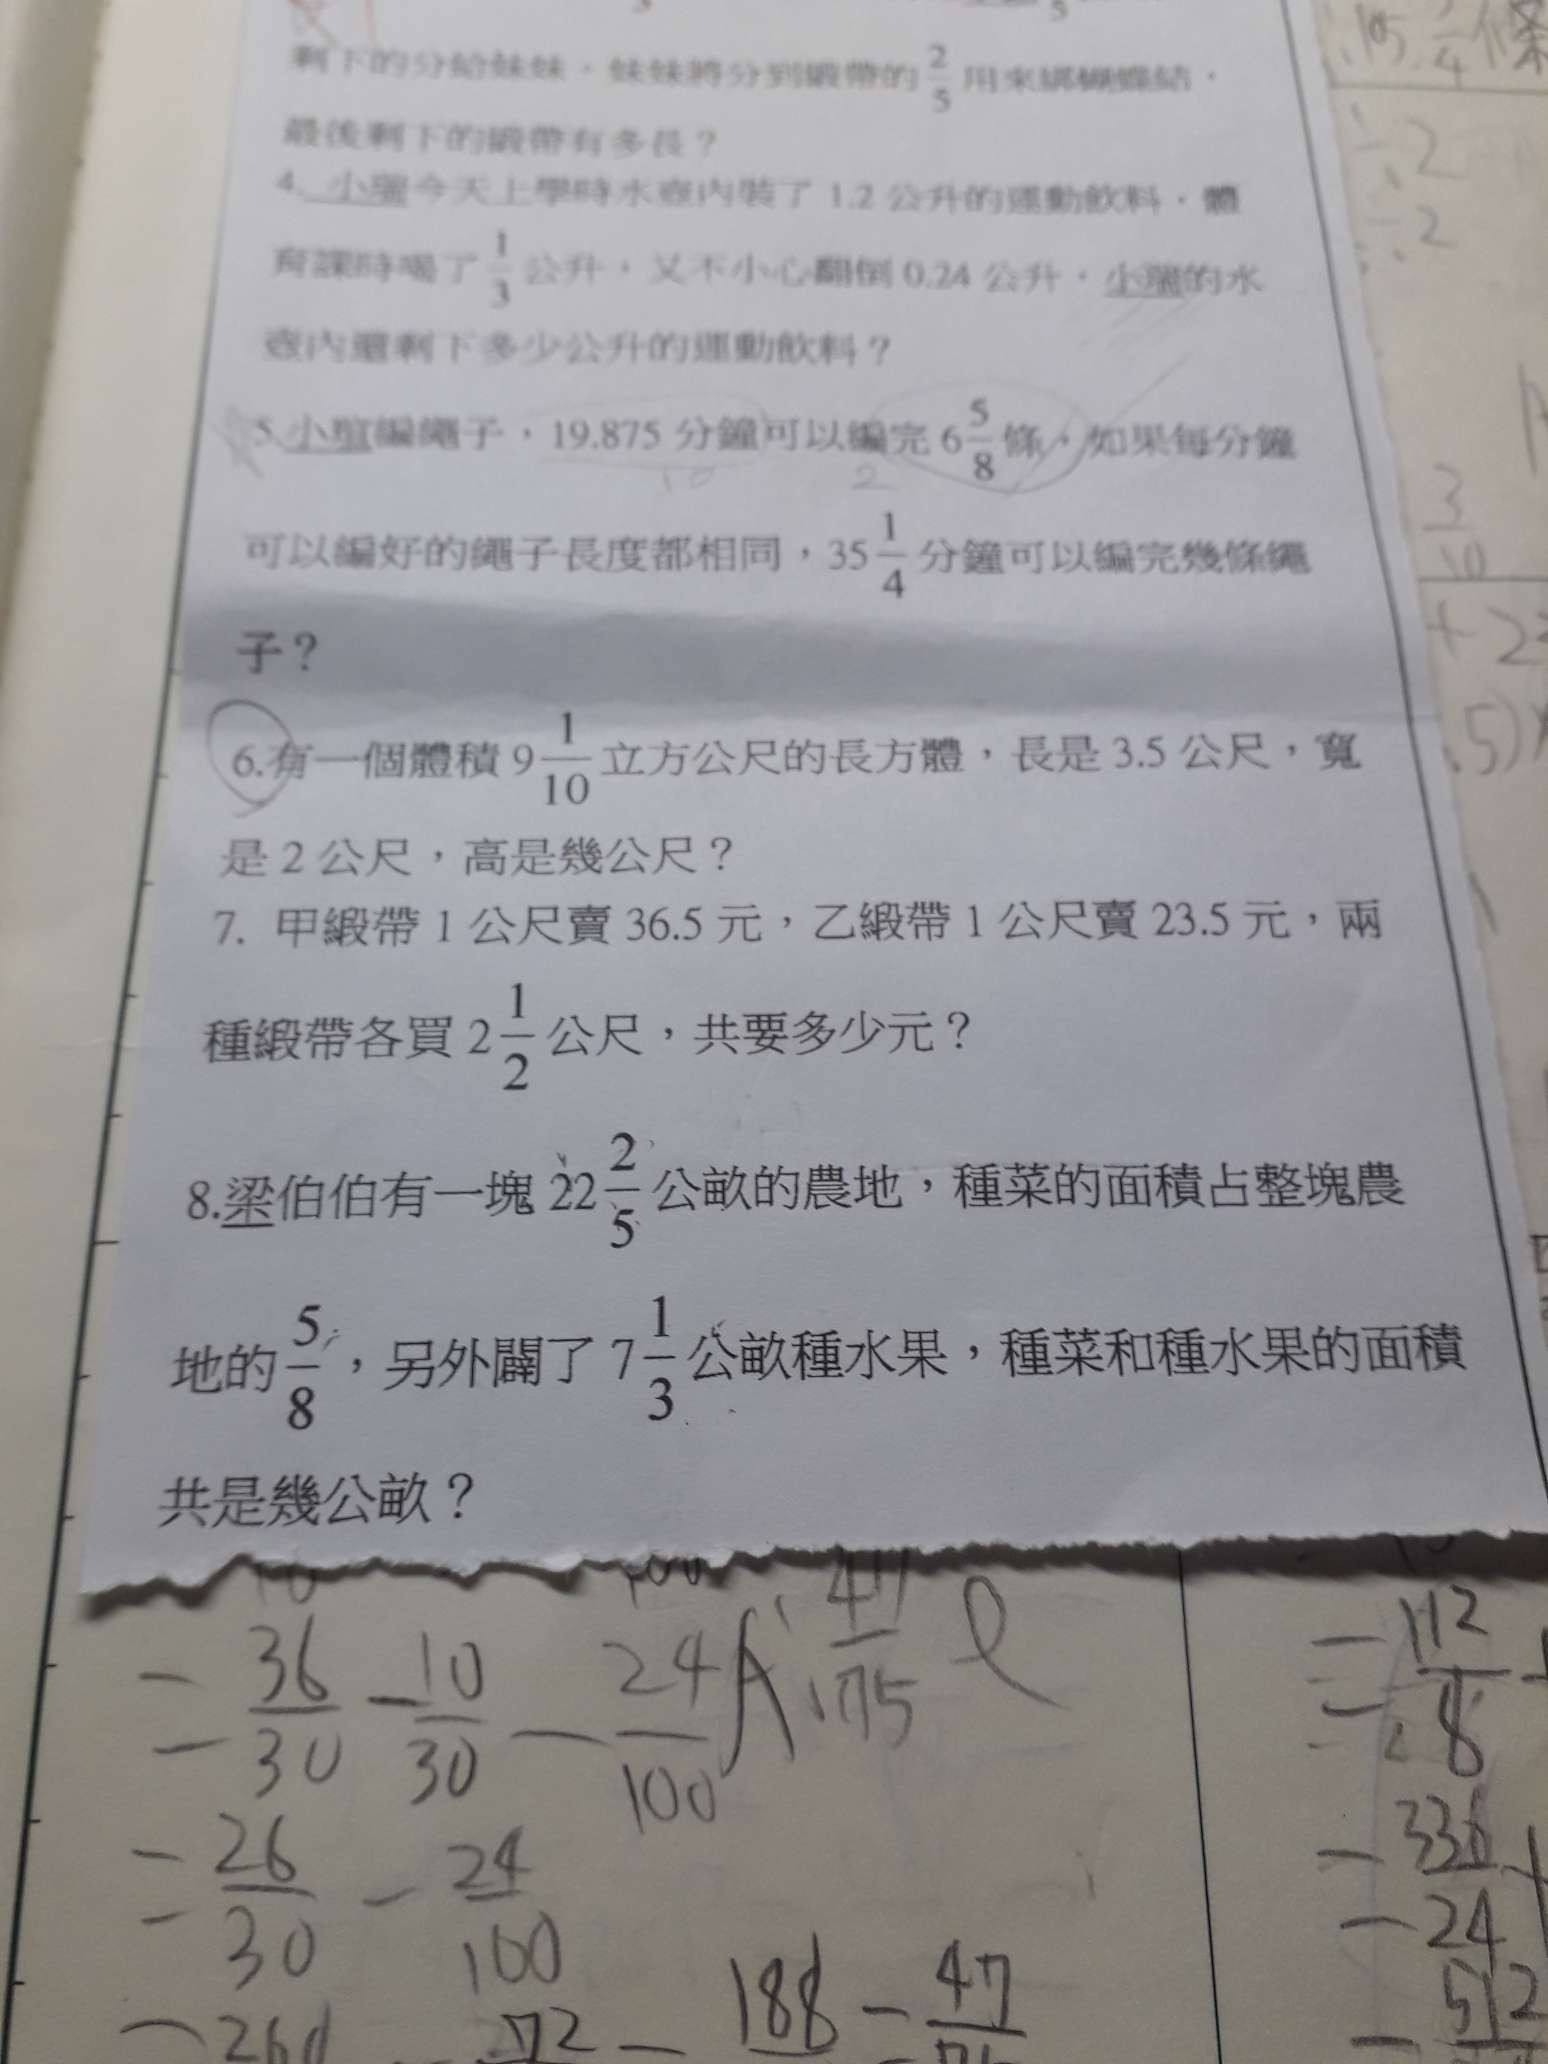 剩下的分給妹妹，妹妹將分到緞帶的 2/5 用來綁蝴蝶結，
最後剩下的緞帶有多長？
4. 小瑞今天上學時水壺內裝了 1.2 公升的運動飲料，體
育課時喝了 1/3 公升，又不小心翻倒 0.24 公升，小瑞的水
壺內還剩下多少公升的運動飲料？
5.小瑄編繩子，19.875 分鐘可以編完 6 5/8 條，如果每分鐘
10 2
可以編好的繩子長度都相同，35 1/4 分鐘可以編完幾條繩
子？
6.有一個體積 9 1/10 立方公尺的長方體，長是 3.5 公尺，寬
是 2 公尺，高是幾公尺？
7. 甲緞帶 1 公尺賣 36.5 元，乙緞帶 1 公尺賣 23.5 元，兩
種緞帶各買 2 1/2 公尺，共要多少元？
8.梁伯伯有一塊 22 2/5 公畝的農地，種菜的面積占整塊農
地的 5/8，另外闢了 7 1/3 公畝種水果，種菜和種水果的面積
共是幾公畝？
= 36/30 - 10/30 - 24/100 A: 47/75 l
= 26/30 - 24/100
= 260 - 72 = 188 = 47
= 112/8 +
= 336/24 +
= 512
÷2
÷2
3/10
+ 23
.5)